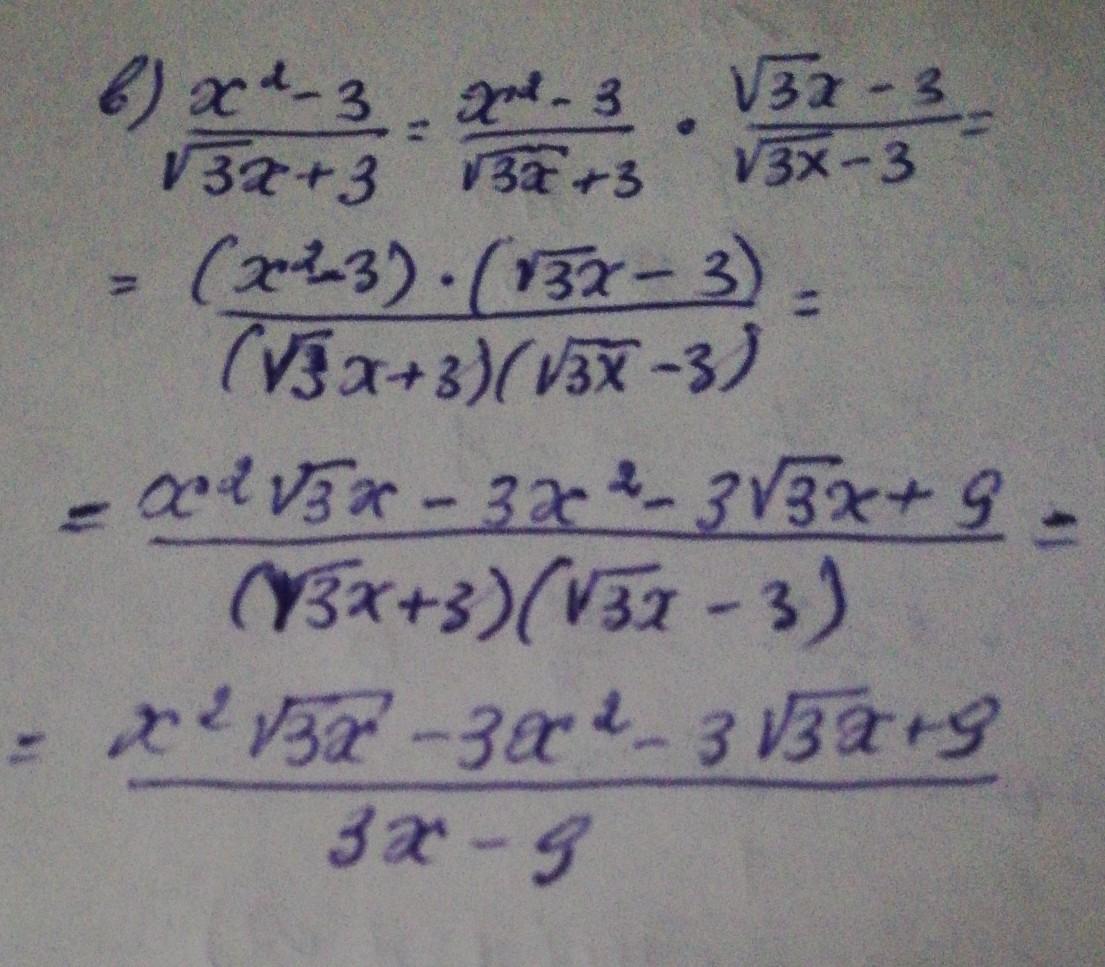 в) (x² - 3)/(√3x + 3) = (x² - 3)/(√3x + 3) · (√3x - 3)/(√3x - 3) =
= ((x² - 3) · (√3x - 3))/((√3x + 3)(√3x - 3)) =
= (x²√3x - 3x² - 3√3x + 9)/((√3x + 3)(√3x - 3)) =
= (x²√3x - 3x² - 3√3x + 9)/(3x - 9)